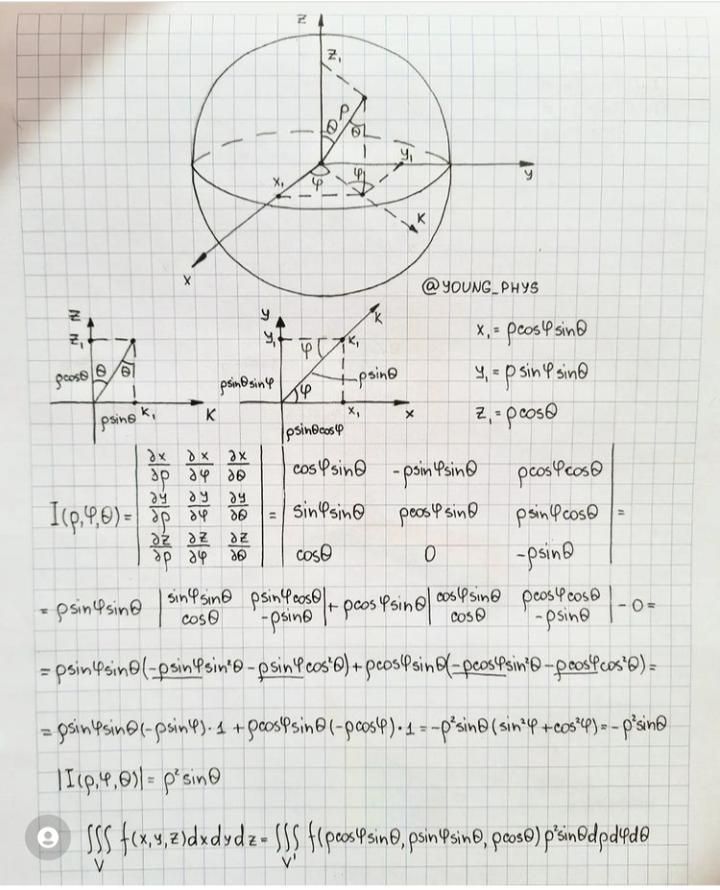 z
z₁
θ ρ θ
y₁
x₁ φ φ
y
K
x
@YOUNG_PHYS
z
z₁
ρcosθ θ θ
ρsinθ K₁ K
y
K
y₁ φ K₁
ρsinθsinφ φ ρsinθ
x₁ x
ρsinθcosφ
x₁ = ρcosφsinθ
y₁ = ρsinφsinθ
z₁ = ρcosθ
I(ρ,φ,θ) = | ∂x/∂ρ ∂x/∂φ ∂x/∂θ | = | cosφsinθ -ρsinφsinθ ρcosφcosθ |
| ∂y/∂ρ ∂y/∂φ ∂y/∂θ | | sinφsinθ ρcosφsinθ ρsinφcosθ | =
| ∂z/∂ρ ∂z/∂φ ∂z/∂θ | | cosθ 0 -ρsinθ |
= ρsinφsinθ | sinφsinθ ρsinφcosθ | + ρcosφsinθ | cosφsinθ ρcosφcosθ | - 0 =
| cosθ -ρsinθ | | cosθ -ρsinθ |
= ρsinφsinθ(-ρsinφsin²θ - ρsinφcos²θ) + ρcosφsinθ(-ρcosφsin²θ - ρcosφcos²θ) =
= ρsinφsinθ(-ρsinφ)·1 + ρcosφsinθ(-ρcosφ)·1 = -ρ²sinθ(sin²φ + cos²φ) = -ρ²sinθ
|I(ρ,φ,θ)| = ρ²sinθ
∭ f(x,y,z)dxdydz = ∭ f(ρcosφsinθ, ρsinφsinθ, ρcosθ) ρ²sinθdρdφdθ
V V'